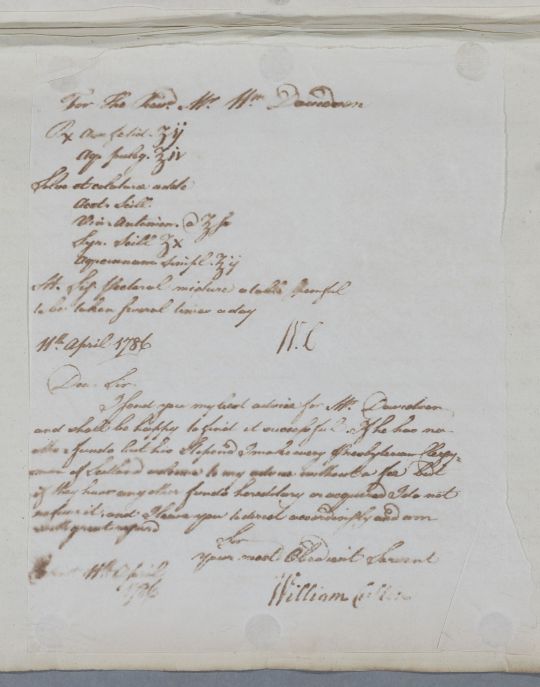 For The Revd. Mr. Wm. Davidson
Rx Asa fœtid. ʒij
Aq. puleg. ℥iv
Solve et colaturæ adde
Acet. Scill.
Vin. Antimon. a ℥ss
Syr. Scill. ʒx
Aq. cinnam. simpl. ℥ij
M. Sig. Pectoral mixture a table spoonful
to be taken several times a day
11th April 1786 W. C
Dear Sir
I send you my best advice for Mr. Davidson
and shall be happy to find it successful. If he has no
other funds but his Stipend I make every Presbyterian Clergy-
man of Scotland welcome to my advice without a fee but
if they have any other funds hereditary or acquired I do not
refuse it, and I leave you to direct accordingly and am
with great regard
Sir
Your most Obedient Servant
William Cullen
11th April
1786